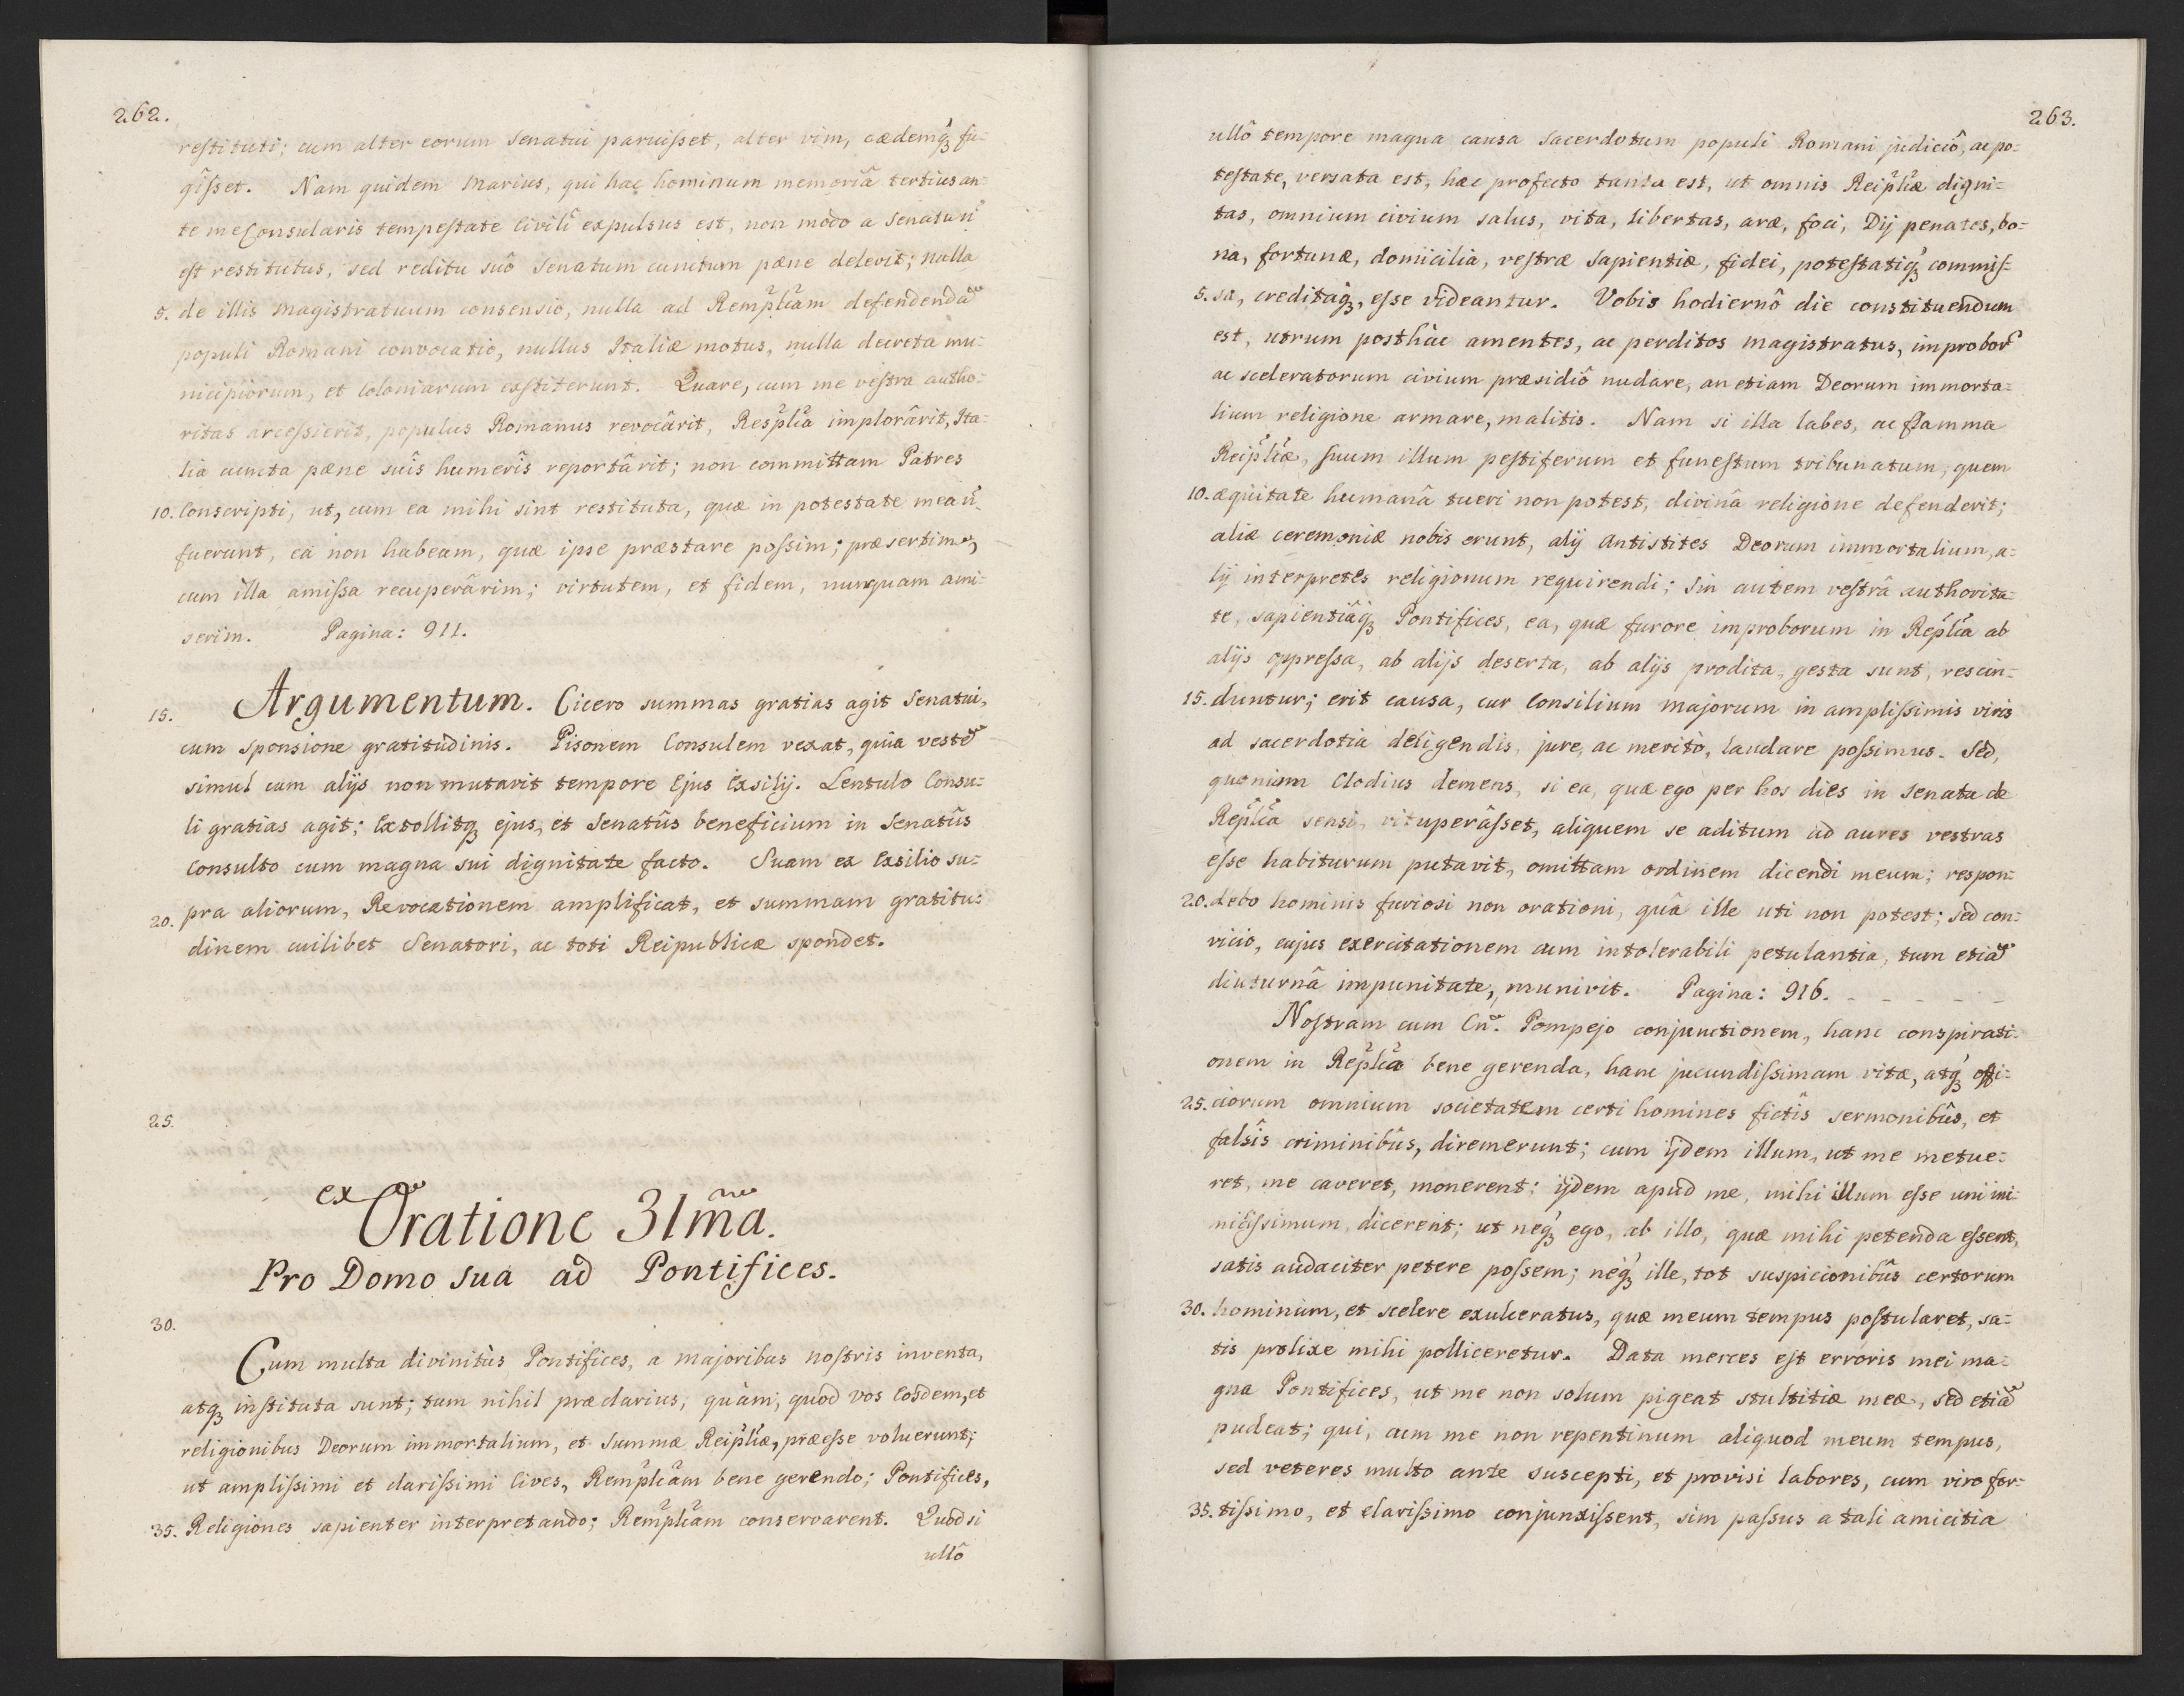 262.
restituti; cum alter eorum Senatui paruisset, alter vim, cædemq́ʒ fu-
gîsset. Nam quidem Marius, qui hac hominum memoriâ tertius an-
te me Consularis tempestate Civilî expulsus est, non modo a Senatu ñ
est restitutus, sed reditu suô Senatum cunctum pæne delevit; nulla
5. de illis Magistratuum consensio, nulla ad Remp̃licam defendendã
populi Romani convocatio, nullus Italiæ motus, nulla decreta mu-
nicipiorum, et Coloniarum exstiterunt. Quare, cum me vestra autho-
ritas arcessierit, populus Romanus revocârit, Resp̃lica implorârit, Ita-
lia cuncta pæne suîs humerîs reportârit; non committam Patres
10. Conscripti, ut, cum ea mihi sint restituta, quæ in potestate mea ñ
fuerunt, ea non habeam, quæ ipse præstare possim; præsertim,
cum illa amissa recuperârim; virtutem, et fidem, nunquam ami-
serim. Pagina: 911.
15. Argumentum. Cicero summas gratias agit Senatui,
cum sponsione gratitudinis. Pisonem Consulem vexat, quia vestẽ
simul cum alijs non mutarit tempore Ejus Exsilij. Lentulo Consu-
li gratias agit; Extollitqʒ ejus, et Senatûs beneficium in Senatûs
Consulto cum magna sui dignitate facto. Suam ex Exsilio su-
20. pra aliorum, Revocationem amplificat, et summam gratitu-
dinem cuilibet Senatori, ac toti Reipublicæ spondet.
25.
ex Oratione 31m̃a.
Pro Domo Sua ad Pontifices.
30.
Cum multa divinitùs Pontifices, a majoribus nostris inventa,
atqʒ instituta sunt; tum nihil præclarius, quàm, quod vos Eosdem, et
religionibus Deorum immortalium, et Summæ Reip̃licæ, præesse voluerunt;
ut amplissimi et clarissimi Cives, Remp̃licam bene gerendo; Pontifices,
35. Religiones sapienter interpretando; Remp̃licam conservarent. Quodsi
ullô
263.
ullô tempore magna causa Sacerdotum populi Romani judiciô, ac po-
testate, versata est, hæc profecto tanta est, ut omnis Reip̃licæ digni-
tas, omnium civium salus, vita, libertas, aræ, foci, Dij penates, bo-
na, fortunæ, domicilia, vestræ Sapientiæ, fidei, potestatiq́ʒ commis-
5. sa, creditaq́ʒ, esse videantur. Vobis hodiernô die constituendum
est, utrum posthàc amentes, ac perditos Magistratus, improbor̃
ac sceleratorum civium præsidiô nudare, an etiam Deorum immorta-
lium religione armare, malitis. Nam si illa labes, ac flamma
Reip̃licæ, suum illum pestiferum et funestum tribunatum, quem
10. æquitate humanâ tueri non potest, divinâ religione defenderit;
aliæ ceremoniæ nobis erunt, alij Antistites Deorum immortalium, a-
lij interpretes religionum requirendi; Sin autem vestrâ authorita-
te, sapientiâq́ʒ Pontifices, ea, quæ furore improborum in Rep̃lica ab
alijs oppressa, ab alijs deserta, ab alijs prodita, gesta sunt, rescin-
15. duntur; erit causa, cur Consilium Majorum in amplissimis viris
ad sacerdotia deligendis, jure, ac meritò, laudare possimus. Sed,
quoniam Clodius demens, si ea, quæ ego per hos dies in Senatu de
Rep̃lica sensi, vituperâsset, aliquem se aditum ad aures vestras
esse habiturum putavit, omittam ordinem dicendi meum; respon-
20. debo hominis furiosi non orationi, quâ ille uti non potest; sed con-
vicio, cujus exercitationem cum intolerabili petulantia, tum etiã
diuturnâ impunitate, munivit. Pagina: 916. - - - - -
Nostram cum Cñ. Pompejo conjunctionem, hanc conspirati-
onem in Rep̃lica bene gerenda, hanc jucundissimam vitæ, atq́ʒ offi-
25. ciorum omnium societatem certi homines fictîs sermonibûs, et
falsîs criminibûs, diremerunt; cum ijdem illum, ut me metue-
ret, me caveret, monerent; ijdem apud me, mihi illum esse uni ini-
micissimum, dicerent; ut neq́ʒ ego, ab illo, quæ mihi petenda essent,
satis audaciter petere possem; neq́ʒ ille, tot suspicionibûs certorum
30. hominum, et scelere exulceratus, quæ meum tempus postularet, sa-
tis prolixe mihi polliceretur. Data merces est erroris mei ma-
gna Pontifices, ut me non solum pigeat stultitiæ meæ, sed etiã
pudeat; qui, cum me non repentinum aliquod meum tempus,
sed veteres multo ante suscepti, et provisi labores, cum viro for-
35. tissimo, et clarissimo conjunxissent, sim passus a tali amicitia